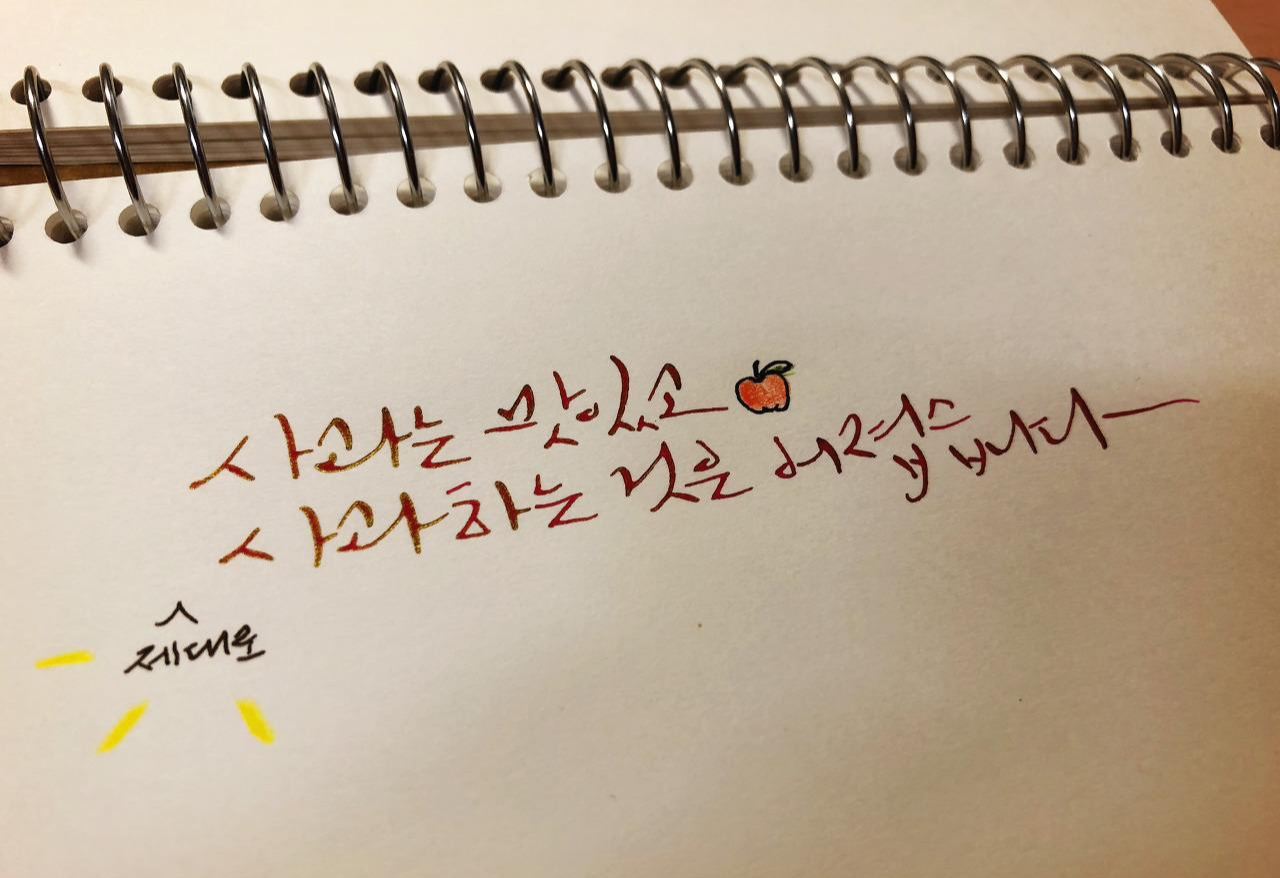 사과는 맛있고
사과하는 것은 어렵습니다
제대로